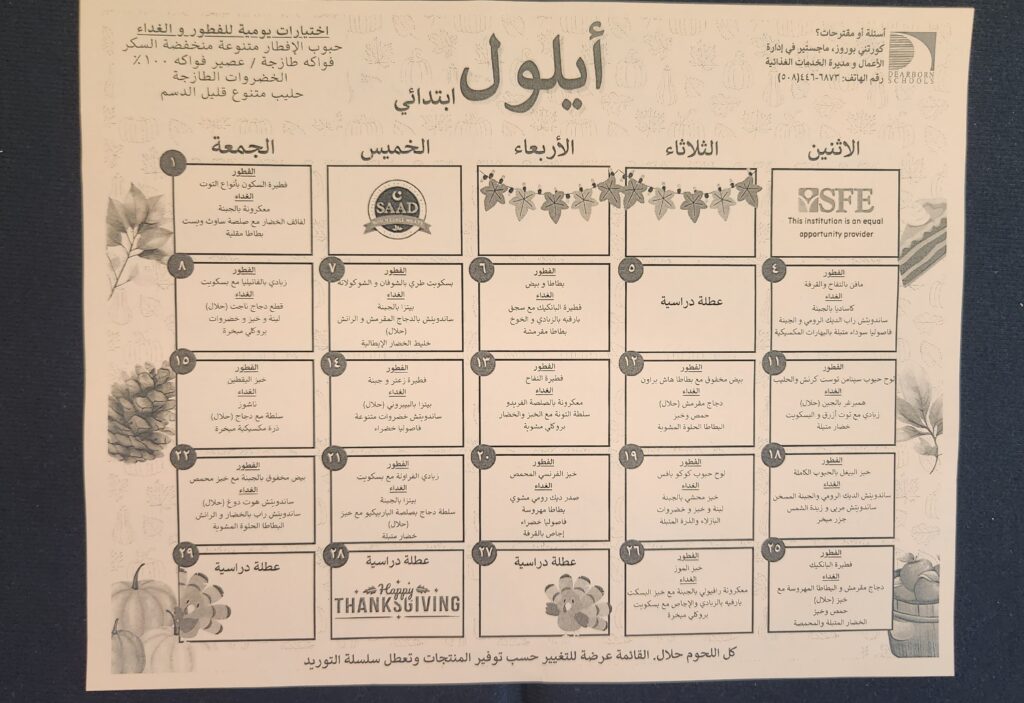 أسئلة أو مقترحات؟
كورتني بوروز، ماجستير في إدارة
الأعمال و مديرة الخدمات الغذائية
رقم الهاتف: ٦٨٧٣-٤٤٦(٥٠٨)
DEARBORN
SCHOOLS
أيلول
ابتدائي
اختيارات يومية للفطور و الغداء
حبوب الإفطار متنوعة منخفضة السكر
فواكه طازجة / عصير فواكه ١٠٠٪
الخضروات الطازجة
حليب متنوع قليل الدسم
الاثنين
الثلاثاء
الأربعاء
الخميس
الجمعة
SFE
This institution is an equal
opportunity provider
SAAD
١
الفطور
فطيرة السكون بأنواع التوت
الغداء
معكرونة بالجبنة
لفائف الخضار مع صلصة ساوث ويست
بطاطا مقلية
٤
الفطور
مافن بالتفاح والقرفة
الغداء
كساديا بالجبنة
ساندويتش راب الديك الرومي و الجبنة
فاصوليا سوداء متبلة بالبهارات المكسيكية
٥
عطلة دراسية
٦
الفطور
بطاطا و بيض
الغداء
فطيرة البانكيك مع سجق
بارفيه بالزبادي و الخوخ
بطاطا مقرمشة
٧
الفطور
بسكويت طري بالشوفان و الشوكولاتة
الغداء
بيتزا بالجبنة
ساندويتش بالدجاج المقرمش و الرانش
(حلال)
خليط الخضار الإيطالية
٨
الفطور
زبادي بالفانيليا مع بسكويت
الغداء
قطع دجاج ناجت (حلال)
لبنة و خبز و خضروات
بروكلي مبخرة
١١
الفطور
لوح حبوب سينامن توست كرنش والحليب
الغداء
همبرغر بالجبن (حلال)
زبادي مع توت أزرق و البسكويت
خضار متبلة
١٢
الفطور
بيض مخفوق مع بطاطا هاش براون
الغداء
دجاج مقرمش (حلال)
حمص وخبز
البطاطا الحلوة المشوية
١٣
الفطور
فطيرة التفاح
الغداء
معكرونة بالصلصة الفريدو
سلطة التونة مع الخبز والخضار
بروكلي مشوية
١٤
الفطور
فطيرة زعتر و جبنة
الغداء
بيتزا بالبيبروني (حلال)
ساندويتش خضروات متنوعة
فاصوليا خضراء
١٥
الفطور
خبز اليقطين
الغداء
ناشوز
سلطة مع دجاج (حلال)
ذرة مكسيكية مبخرة
١٨
الفطور
خبز البيغل بالحبوب الكاملة
الغداء
ساندويتش الديك الرومي والجبنة المسخن
ساندويتش مربى و زبدة الشمس
جزر مبخر
١٩
الفطور
لوح حبوب كوكو بافس
الغداء
خبز محشي بالجبنة
لبنة و خبز و خضروات
البازلاء والذرة المتبلة
٢٠
الفطور
خبز الفرنسي المحمص
الغداء
صدر ديك رومي مشوي
بطاطا مهروسة
فاصوليا خضراء
إجاص بالقرفة
٢١
الفطور
زبادي الفراولة مع بسكويت
الغداء
بيتزا بالجبنة
سلطة دجاج بصلصة الباربيكيو مع خبز
(حلال)
خضار متبلة
٢٢
الفطور
بيض مخفوق بالجبنة مع خبز محمص
الغداء
ساندويتش هوت دوغ (حلال)
ساندويتش راب بالخضار و الرانش
البطاطا الحلوة المشوية
٢٥
الفطور
فطيرة البانكيك
الغداء
دجاج مقرمش و البطاطا المهروسة مع
خبز (حلال)
حمص وخبز
الخضار المتبلة والمحمصة
٢٦
الفطور
خبز الموز
الغداء
معكرونة رافيولي بالجبنة مع خبز البسكت
بارفيه بالزبادي والإجاص مع بسكويت
بروكلي مبخرة
٢٧
عطلة دراسية
٢٨
عطلة دراسية
Happy
THANKSGIVING
٢٩
عطلة دراسية
كل اللحوم حلال. القائمة عرضة للتغيير حسب توفير المنتجات وتعطل سلسلة التوريد